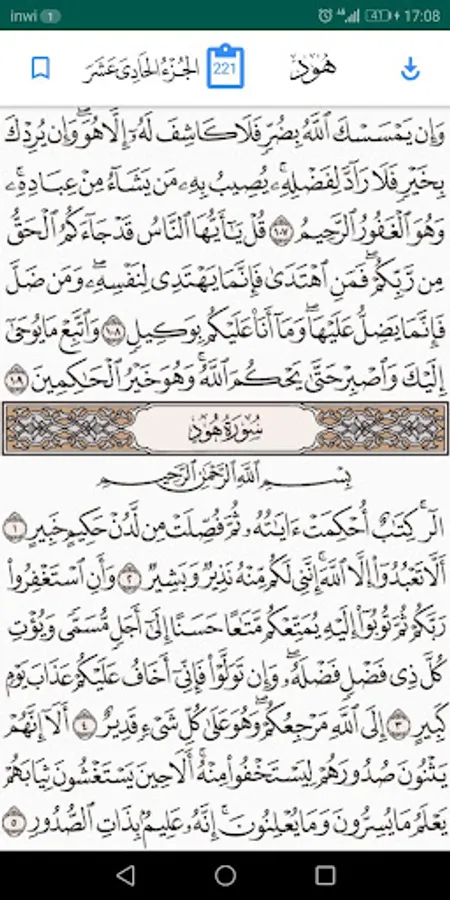 inwi 1 41 17:08
الجُزْءُ الحَادِىَ عَشَرَ 221 هُود
وَإِن يَمْسَسْكَ ٱللَّهُ بِضُرٍّ فَلَا كَاشِفَ لَهُۥٓ إِلَّا هُوَۖ وَإِن يُرِدْكَ
بِخَيْرٍ فَلَا رَآدَّ لِفَضْلِهِۦۚ يُصِيبُ بِهِۦ مَن يَشَآءُ مِنْ عِبَادِهِۦۚ
وَهُوَ ٱلْغَفُورُ ٱلرَّحِيمُ ١٠٧ قُلْ يَٰٓأَيُّهَا ٱلنَّاسُ قَدْ جَآءَكُمُ ٱلْحَقُّ
مِن رَّبِّكُمْۖ فَمَنِ ٱهْتَدَىٰ فَإِنَّمَا يَهْتَدِى لِنَفْسِهِۦۖ وَمَن ضَلَّ
فَإِنَّمَا يَضِلُّ عَلَيْهَاۖ وَمَآ أَنَا۠ عَلَيْكُم بِوَكِيلٍ ١٠٨ وَٱتَّبِعْ مَا يُوحَىٰٓ
إِلَيْكَ وَٱصْبِرْ حَتَّىٰ يَحْكُمَ ٱللَّهُۚ وَهُوَ خَيْرُ ٱلْحَٰكِمِينَ ١٠٩
سُورَةُ هُودٍ
بِسْمِ ٱللَّهِ ٱلرَّحْمَٰنِ ٱلرَّحِيمِ
الٓرۚ كِتَٰبٌ أُحْكِمَتْ ءَايَٰتُهُۥ ثُمَّ فُصِّلَتْ مِن لَّدُنْ حَكِيمٍ خَبِيرٍ ١
أَلَّا تَعْبُدُوٓا۟ إِلَّا ٱللَّهَۚ إِنَّنِى لَكُم مِّنْهُ نَذِيرٌ وَبَشِيرٌ ٢ وَأَنِ ٱسْتَغْفِرُوا۟
رَبَّكُمْ ثُمَّ تُوبُوٓا۟ إِلَيْهِ يُمَتِّعْكُم مَّتَٰعًا حَسَنًا إِلَىٰٓ أَجَلٍ مُّسَمًّى وَيُؤْتِ
كُلَّ ذِى فَضْلٍ فَضْلَهُۥۖ وَإِن تَوَلَّوْا۟ فَإِنِّىٓ أَخَافُ عَلَيْكُمْ عَذَابَ يَوْمٍ
كَبِيرٍ ٣ إِلَى ٱللَّهِ مَرْجِعُكُمْۖ وَهُوَ عَلَىٰ كُلِّ شَىْءٍ قَدِيرٌ ٤ أَلَآ إِنَّهُمْ
يَثْنُونَ صُدُورَهُمْ لِيَسْتَخْفُوا۟ مِنْهُۚ أَلَا حِينَ يَسْتَغْشُونَ ثِيَابَهُمْ
يَعْلَمُ مَا يُسِرُّونَ وَمَا يُعْلِنُونَۚ إِنَّهُۥ عَلِيمٌۢ بِذَاتِ ٱلصُّدُورِ ٥